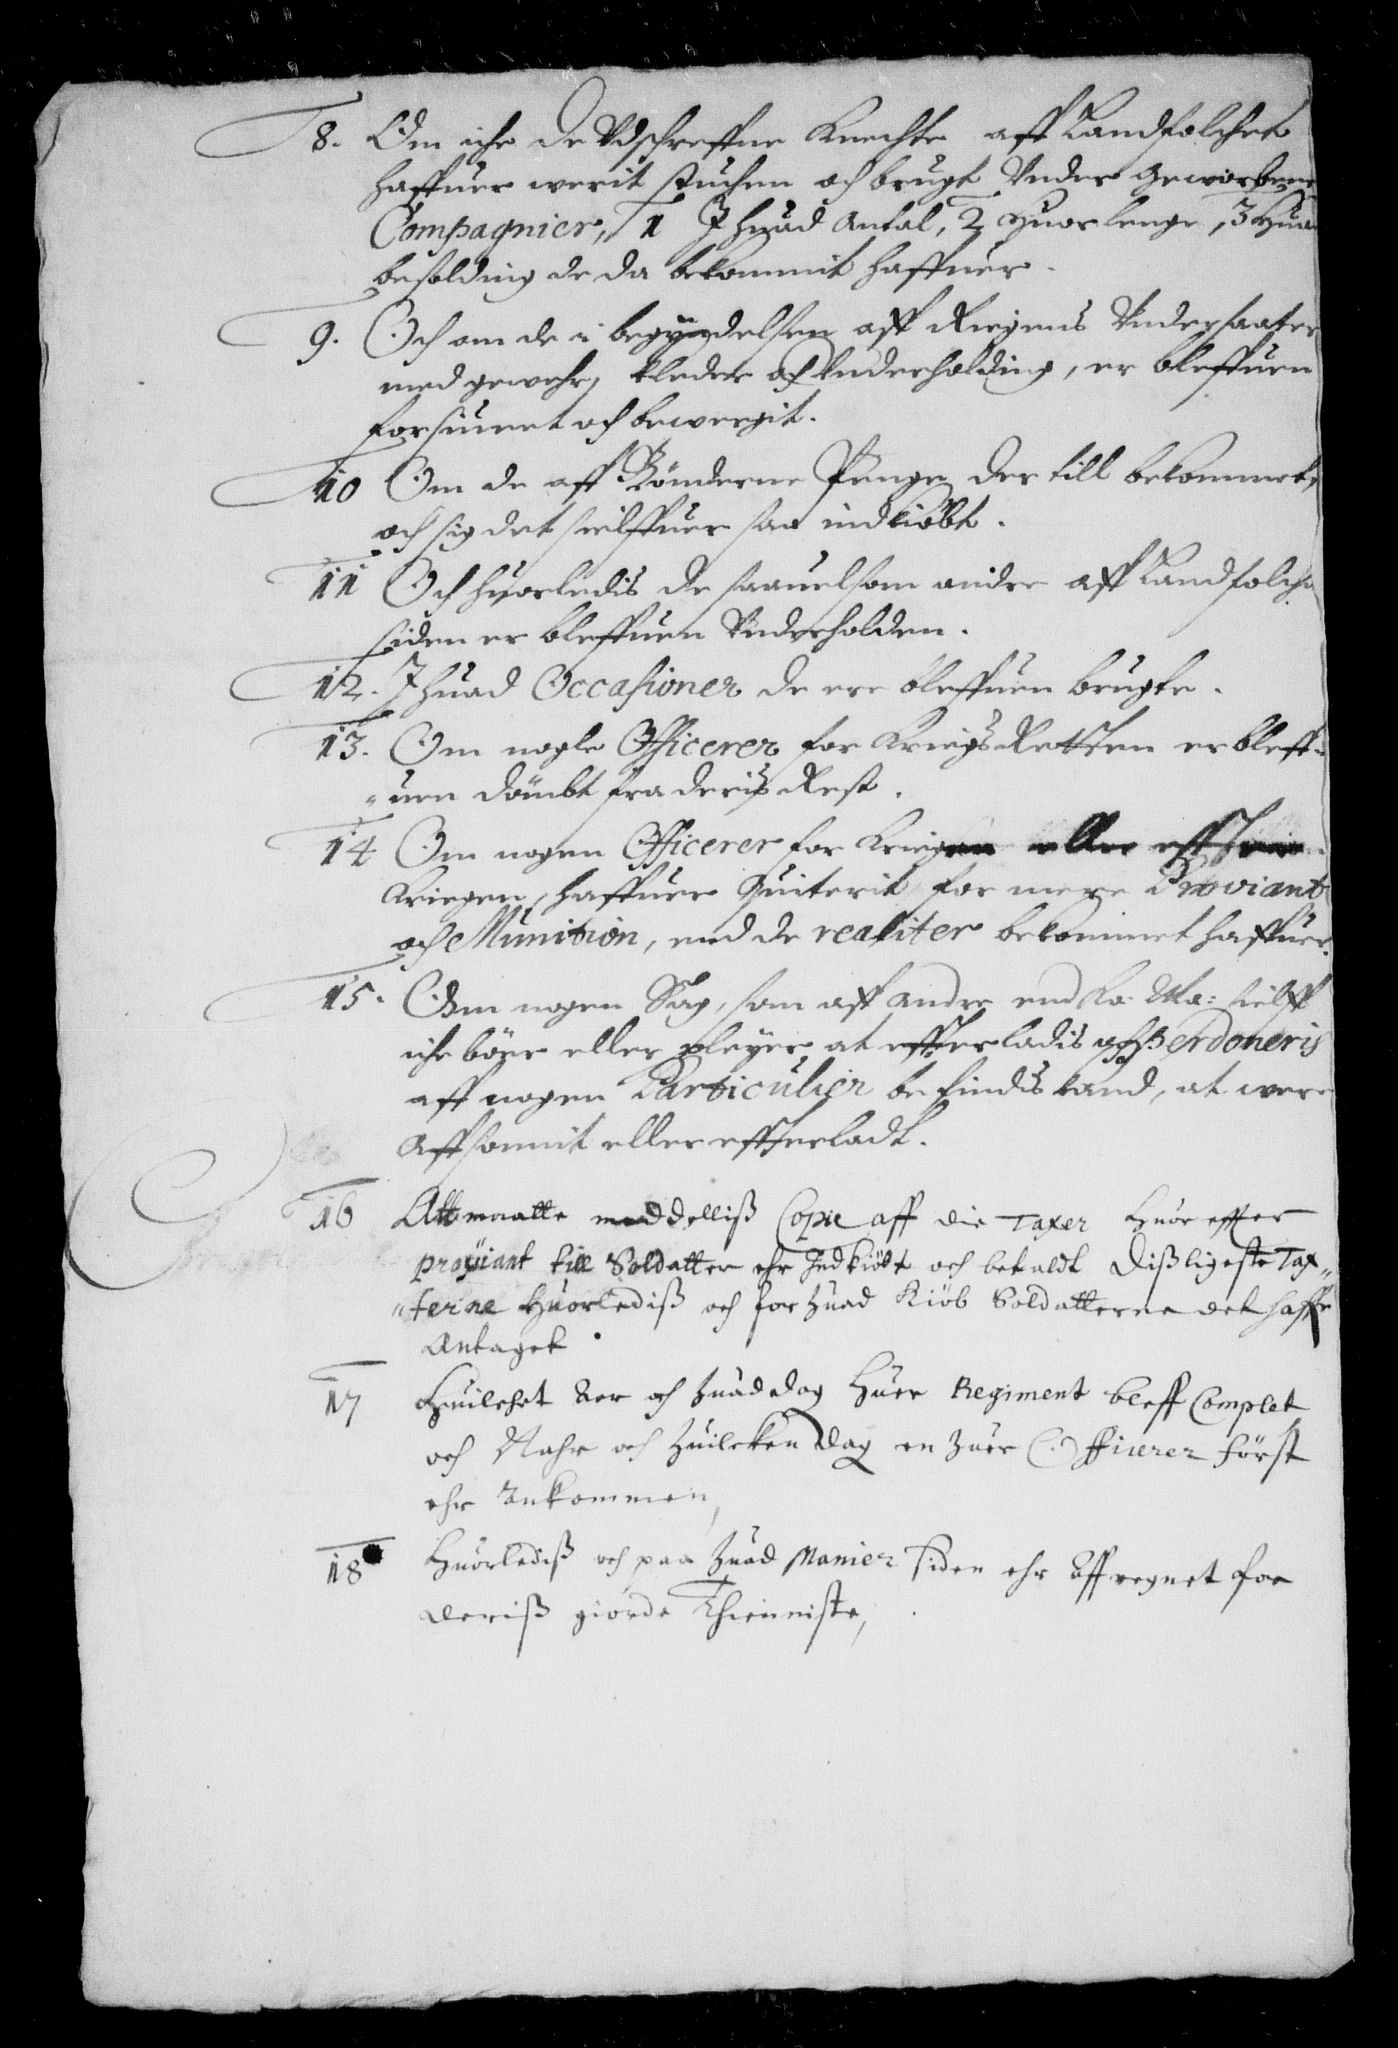 8. Om iche de Vdschreffne Knechte aff Landfolchet
haffuer werit stuchen och brugt Vnder geworbene
Compagnier, 1 J huad Antal, 2 Huor lenge, 3 Huad
besolding de da bekommit haffuer.
9. Och om de i begyndelsen aff Riigens Vndersaater
med gewehr, kleder och Vnderholding, er bleffuen
forsiunet och bewergit.
10 Om de aff Bönderne Penge der till bekommet,
och sig det sielffuer saa indkiöbt.
11 Och huorledis de saauelsom andre aff Landfolche
siden er bleffuen Vnderholden.
12. J huad Occasioner de ere bleffuen brugte.
13. Om nogle Officerer for KriegsRetten er bleff-
uen dömbt fra deris Rest.
14 Om nogen Officerer for eller effter
Kriegen, haffuer Quiterit for mere Proviant
och Munition, end de realiter bekommet haffuer.
15. Om nogen Sag, som aff andre end Ko: Ma: sielff
iche bör eller pleyer at effterladis och Perdoneris
aff nogen Particulier befindis kand, at were
Affsonnit eller effterladt.
16 Att maatte meddelliß Copie aff die Taxer Huor effter
proviant till Soldatter ehr Indkiöbt och betaldt Dißligeste Tax„
„terne Huorlediß och for huad Kiöb Soldatterne det haffr
Antaget
17 Huilchet Aar och huad dag Huer Regiment bleff Complet
och Nahr och huilcken dag en huer Officerer först
ehr Ankommen,
18 Huorlediß och paa huad Manier siden ehr Affregnet for
deriß giorde Thienniste,